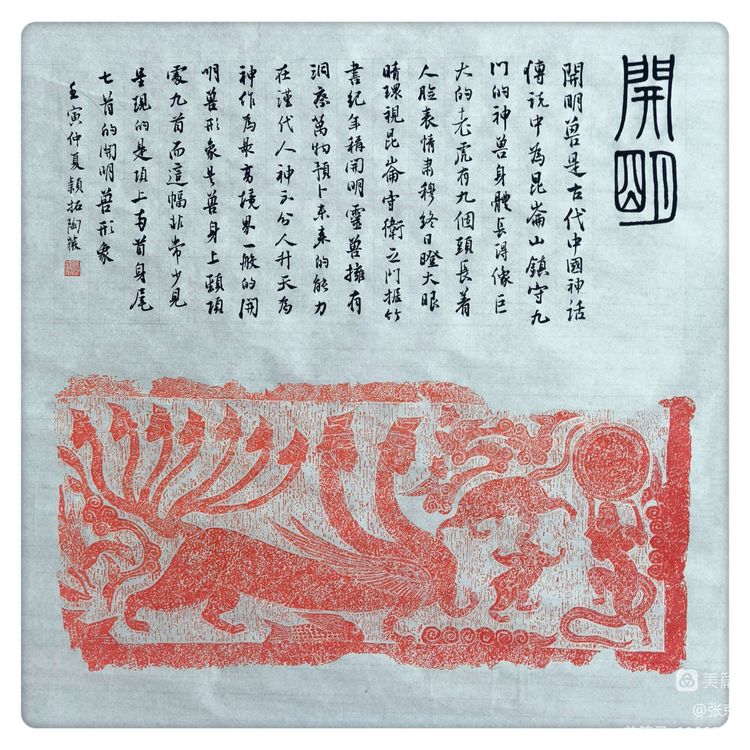 開明
開明獸是古代中國神話
傳說中為昆崙山鎮守九
门的神獸身體長得像巨
大的老虎有九個頭長着
人脸表情肅穆终日瞪大眼
睛環視昆崙守衛之門据竹
書紀年稱開明靈獸擁有
洞察萬物預卜未来的能力
在漢代人神不分人升天為
神作為最高境界一般的開
明獸形象是獸身上頸項
處九首而這幅非常少見
呈現的是項上两首身尾
七首的開明獸形象
壬寅仲夏颖拓陶
美篇
@张京